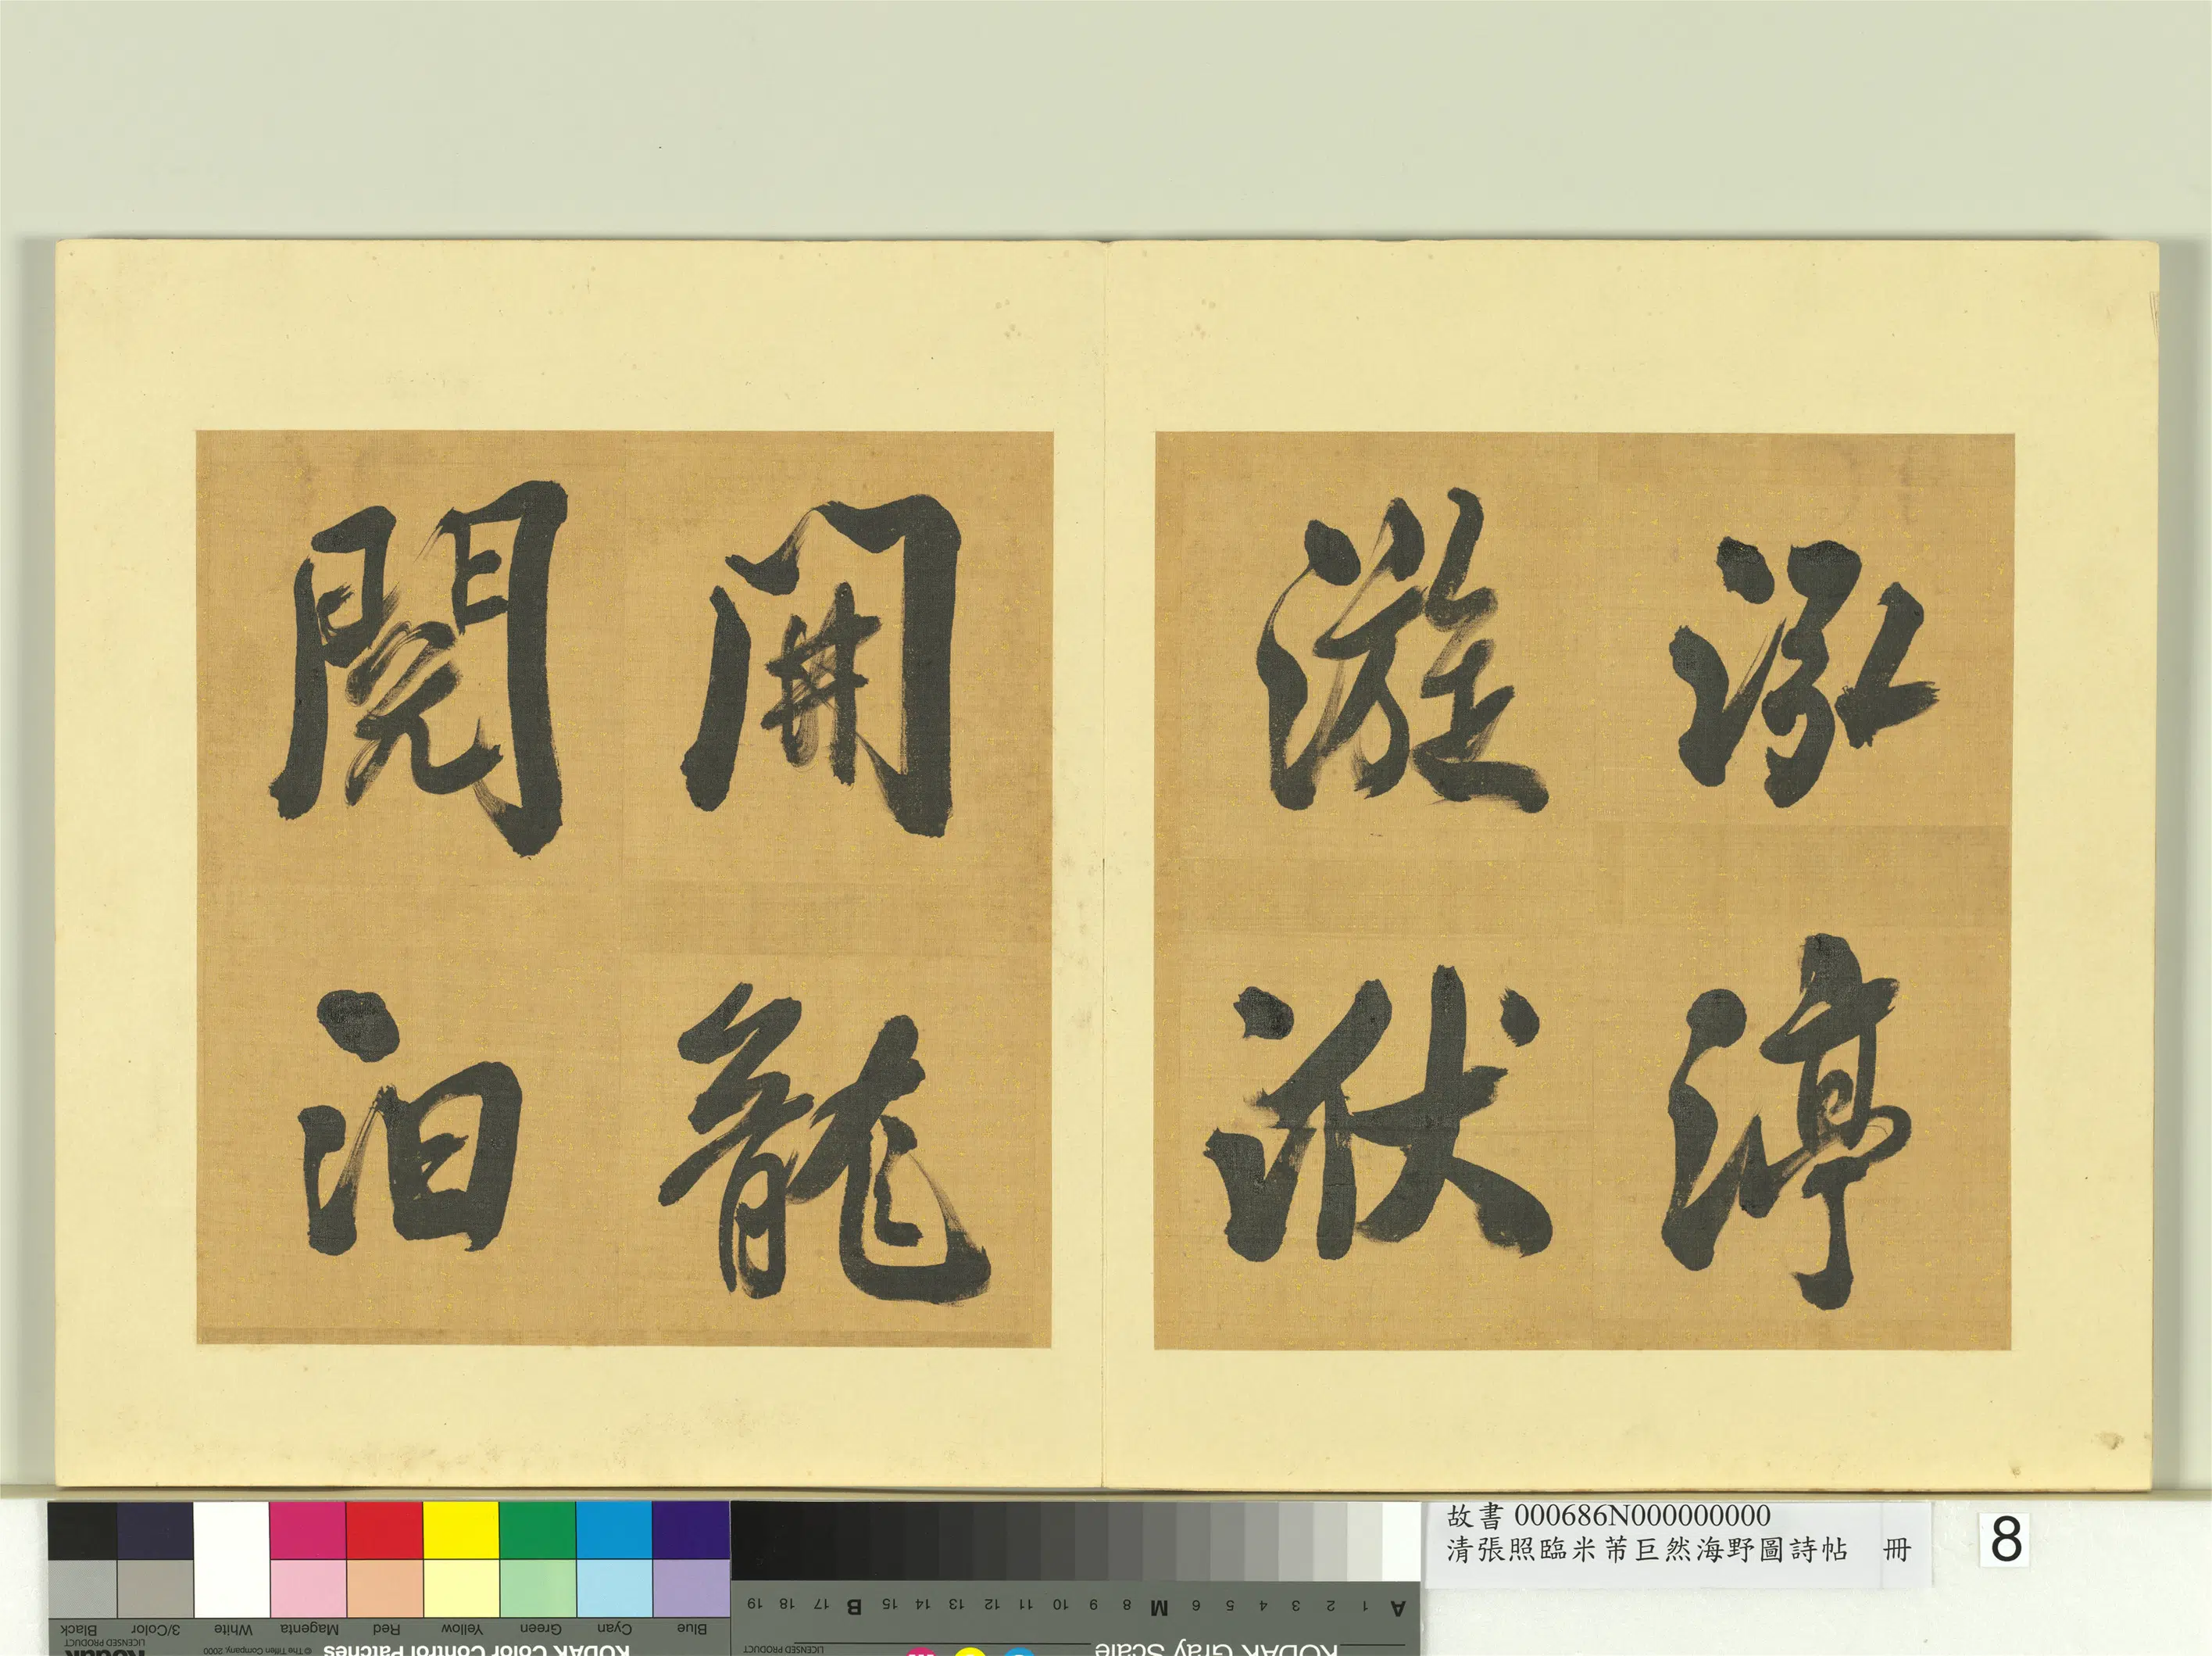 泓渟
漩洑
開龍
閱汩
故書 000686N000000000
清張照臨米芾巨然海野圖詩帖 冊
8
Blue Cyan Green Yellow Red Magenta White 3/Color Black
KODAK Color Control Patches
© The Tiffen Company, 2000
LICENSED PRODUCT
Kodak
A 1 2 3 4 5 6 M 8 9 10 11 12 13 14 15 B 17 18 19
KODAK Gray Scale
LICENSED PRODUCT